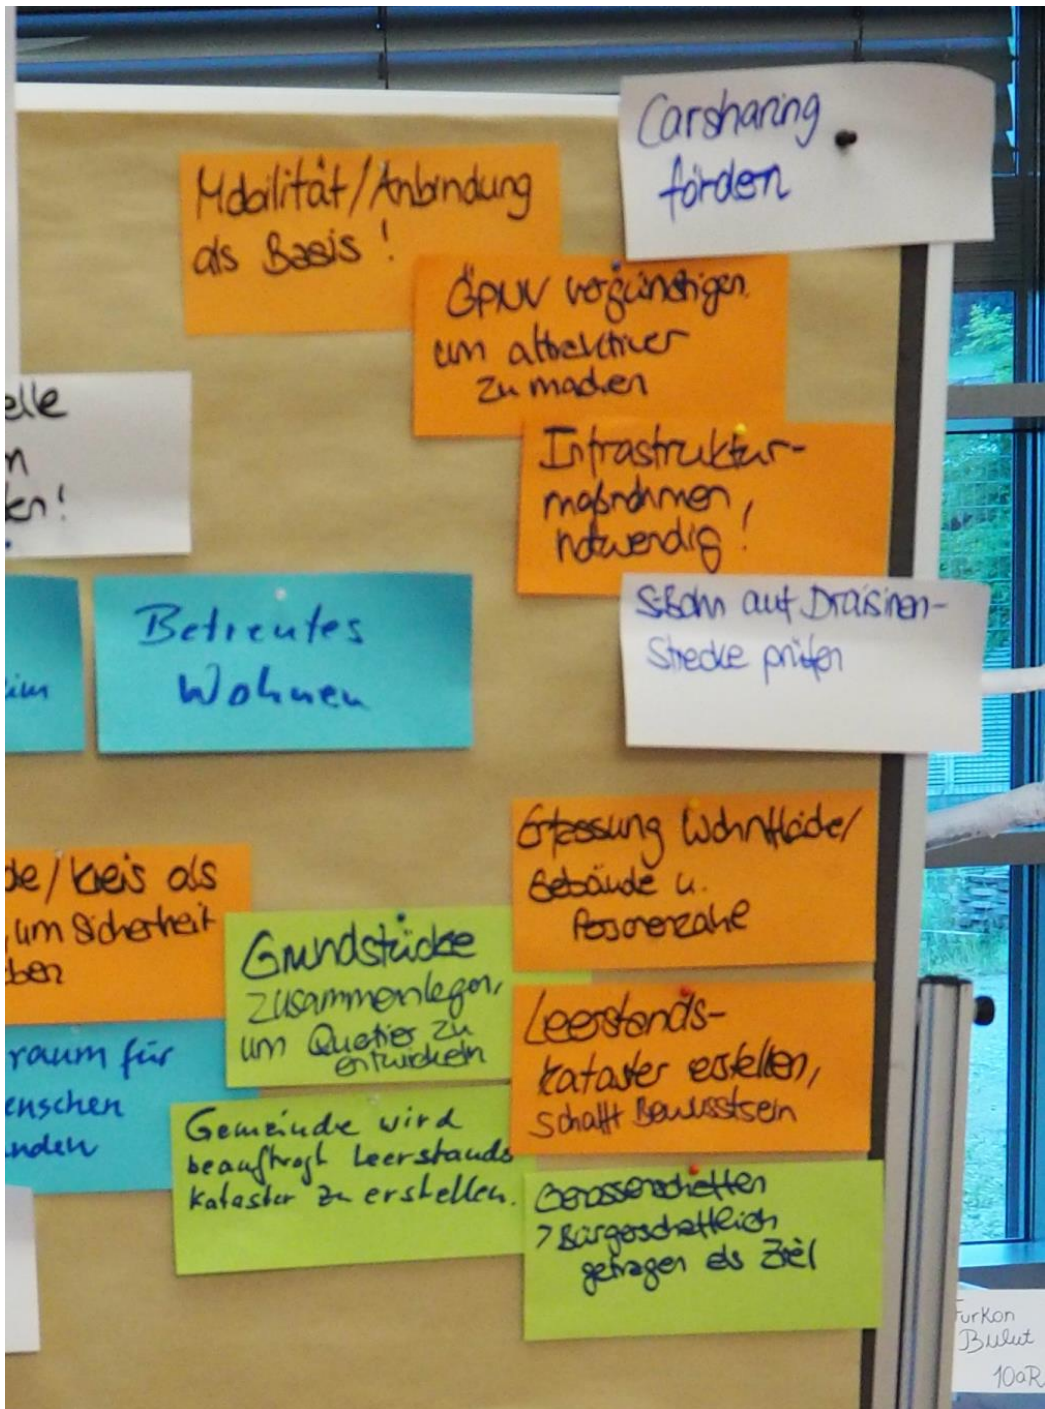 Carsharing
fördern
Mobilität/Anbindung
als Basis!
ÖPNV vergünstigen,
um attraktiver
zu machen
Infrastruktur-
maßnahmen,
notwendig!
elle
n
en!
S-Bahn auf Draisinen-
Strecke prüfen
eim
Betreutes
Wohnen
Erfassung Wohnfläche/
Gebäude u.
Personenzahl
de/Kreis als
um Sicherheit
ben
Grundstücke
zusammenlegen,
um Quatier zu
entwickeln
Leerstands-
kataster erstellen,
schafft Bewusstsein
raum für
enschen
nden
Gemeinde wird
beauftragt Leerstands
kataster zu erstellen.
Genossenschaften
> Bürgerschaftlich
getragen als Ziel
Furkan
Bulut
10aR